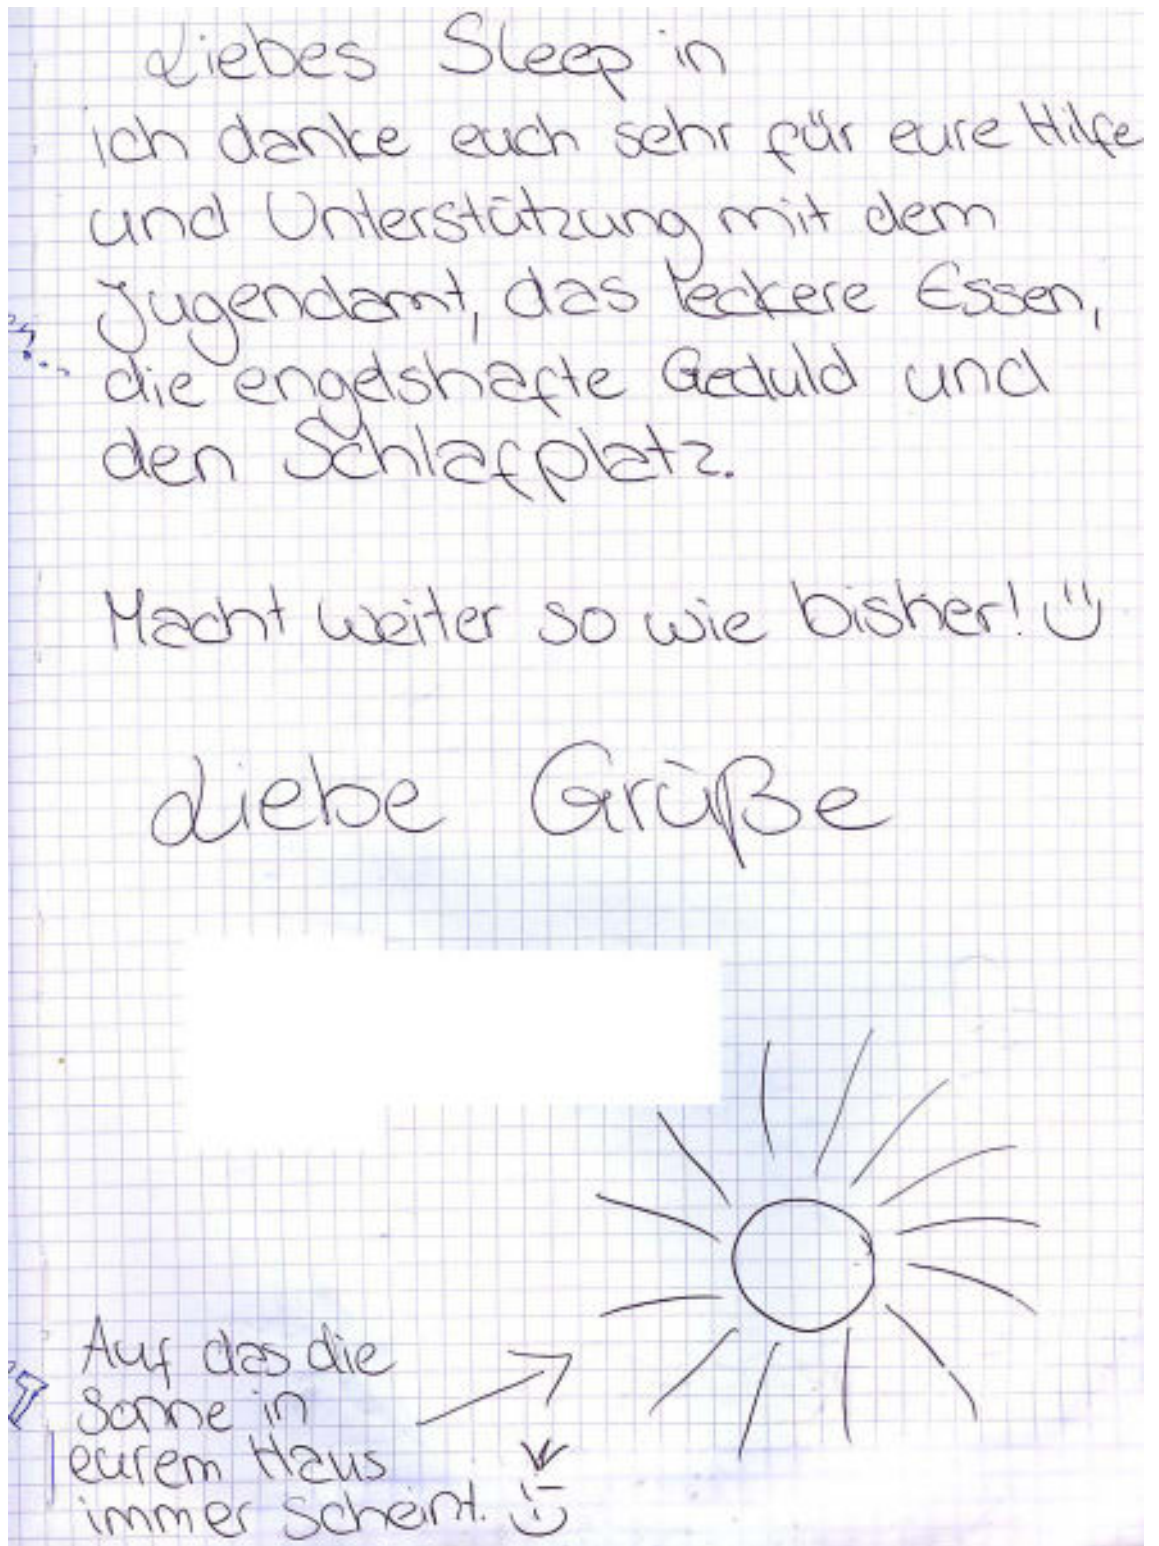 Liebes Sleep in
ich danke euch sehr für eure Hilfe
und Unterstützung mit dem
Jugendamt, das leckere Essen,
die engelshafte Geduld und
den Schlafplatz.
Macht weiter so wie bisher!
Liebe Grüße
Auf das die
Sonne in
eurem Haus
immer scheint.